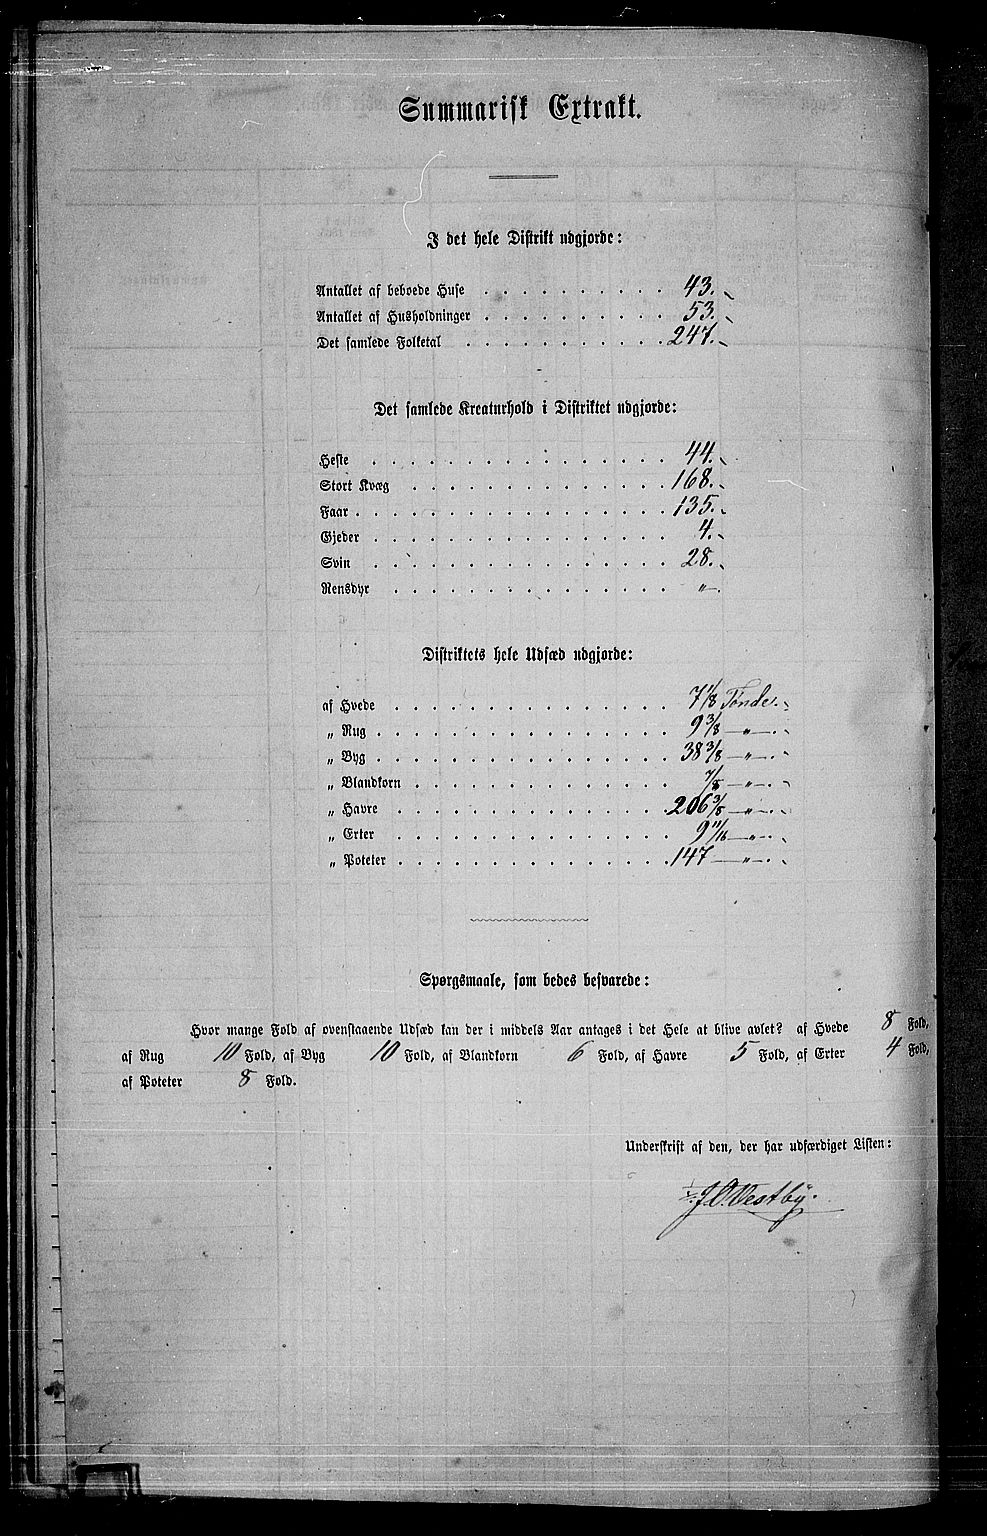 Summarisk Extrakt.
I det hele Distrikt udgjorde:
Antallet af beboede Huse . . . . . . . . . . 43.
Antallet af Husholdninger . . . . . . . . . . 53.
Det samlede Folketal . . . . . . . . . . . 247.
Det samlede Kreaturhold i Distriktet udgjorde:
Heste . . . . . . . . . . . . . . . . 44.
Stort Kvæg . . . . . . . . . . . . . . 168.
Faar . . . . . . . . . . . . . . . . . 135.
Gjeder . . . . . . . . . . . . . . . . 4.
Svin . . . . . . . . . . . . . . . . 28.
Rensdyr . . . . . . . . . . . . . . . „
Distriktets hele Udsæd udgjorde:
af Hvede . . . . . . . . . . . . . . . 7 1/8 Tønde.
„ Rug . . . . . . . . . . . . . . . . 9 3/8 — „ —.
„ Byg . . . . . . . . . . . . . . . . 38 3/8 — „ —.
„ Blandkorn . . . . . . . . . . . . . . 7/8 — „ —.
„ Havre . . . . . . . . . . . . . . . 206 3/8 — „ —.
„ Erter . . . . . . . . . . . . . . . 9 11/16 — „ —.
„ Poteter . . . . . . . . . . . . . . . 147 — „ —.
Spørgsmaale, som bedes besvarede:
Hvor mange Fold af ovenstaaende Udsæd kan der i middels Aar antages i det Hele at blive avlet? af Hvede 8 Fold,
af Rug 10 Fold, af Byg 10 Fold, af Blandkorn 6 Fold, af Havre 5 Fold, af Erter 4 Fold,
af Poteter 8 Fold.
Underskrift af den, der har udfærdiget Listen:
J. O. Vestby.